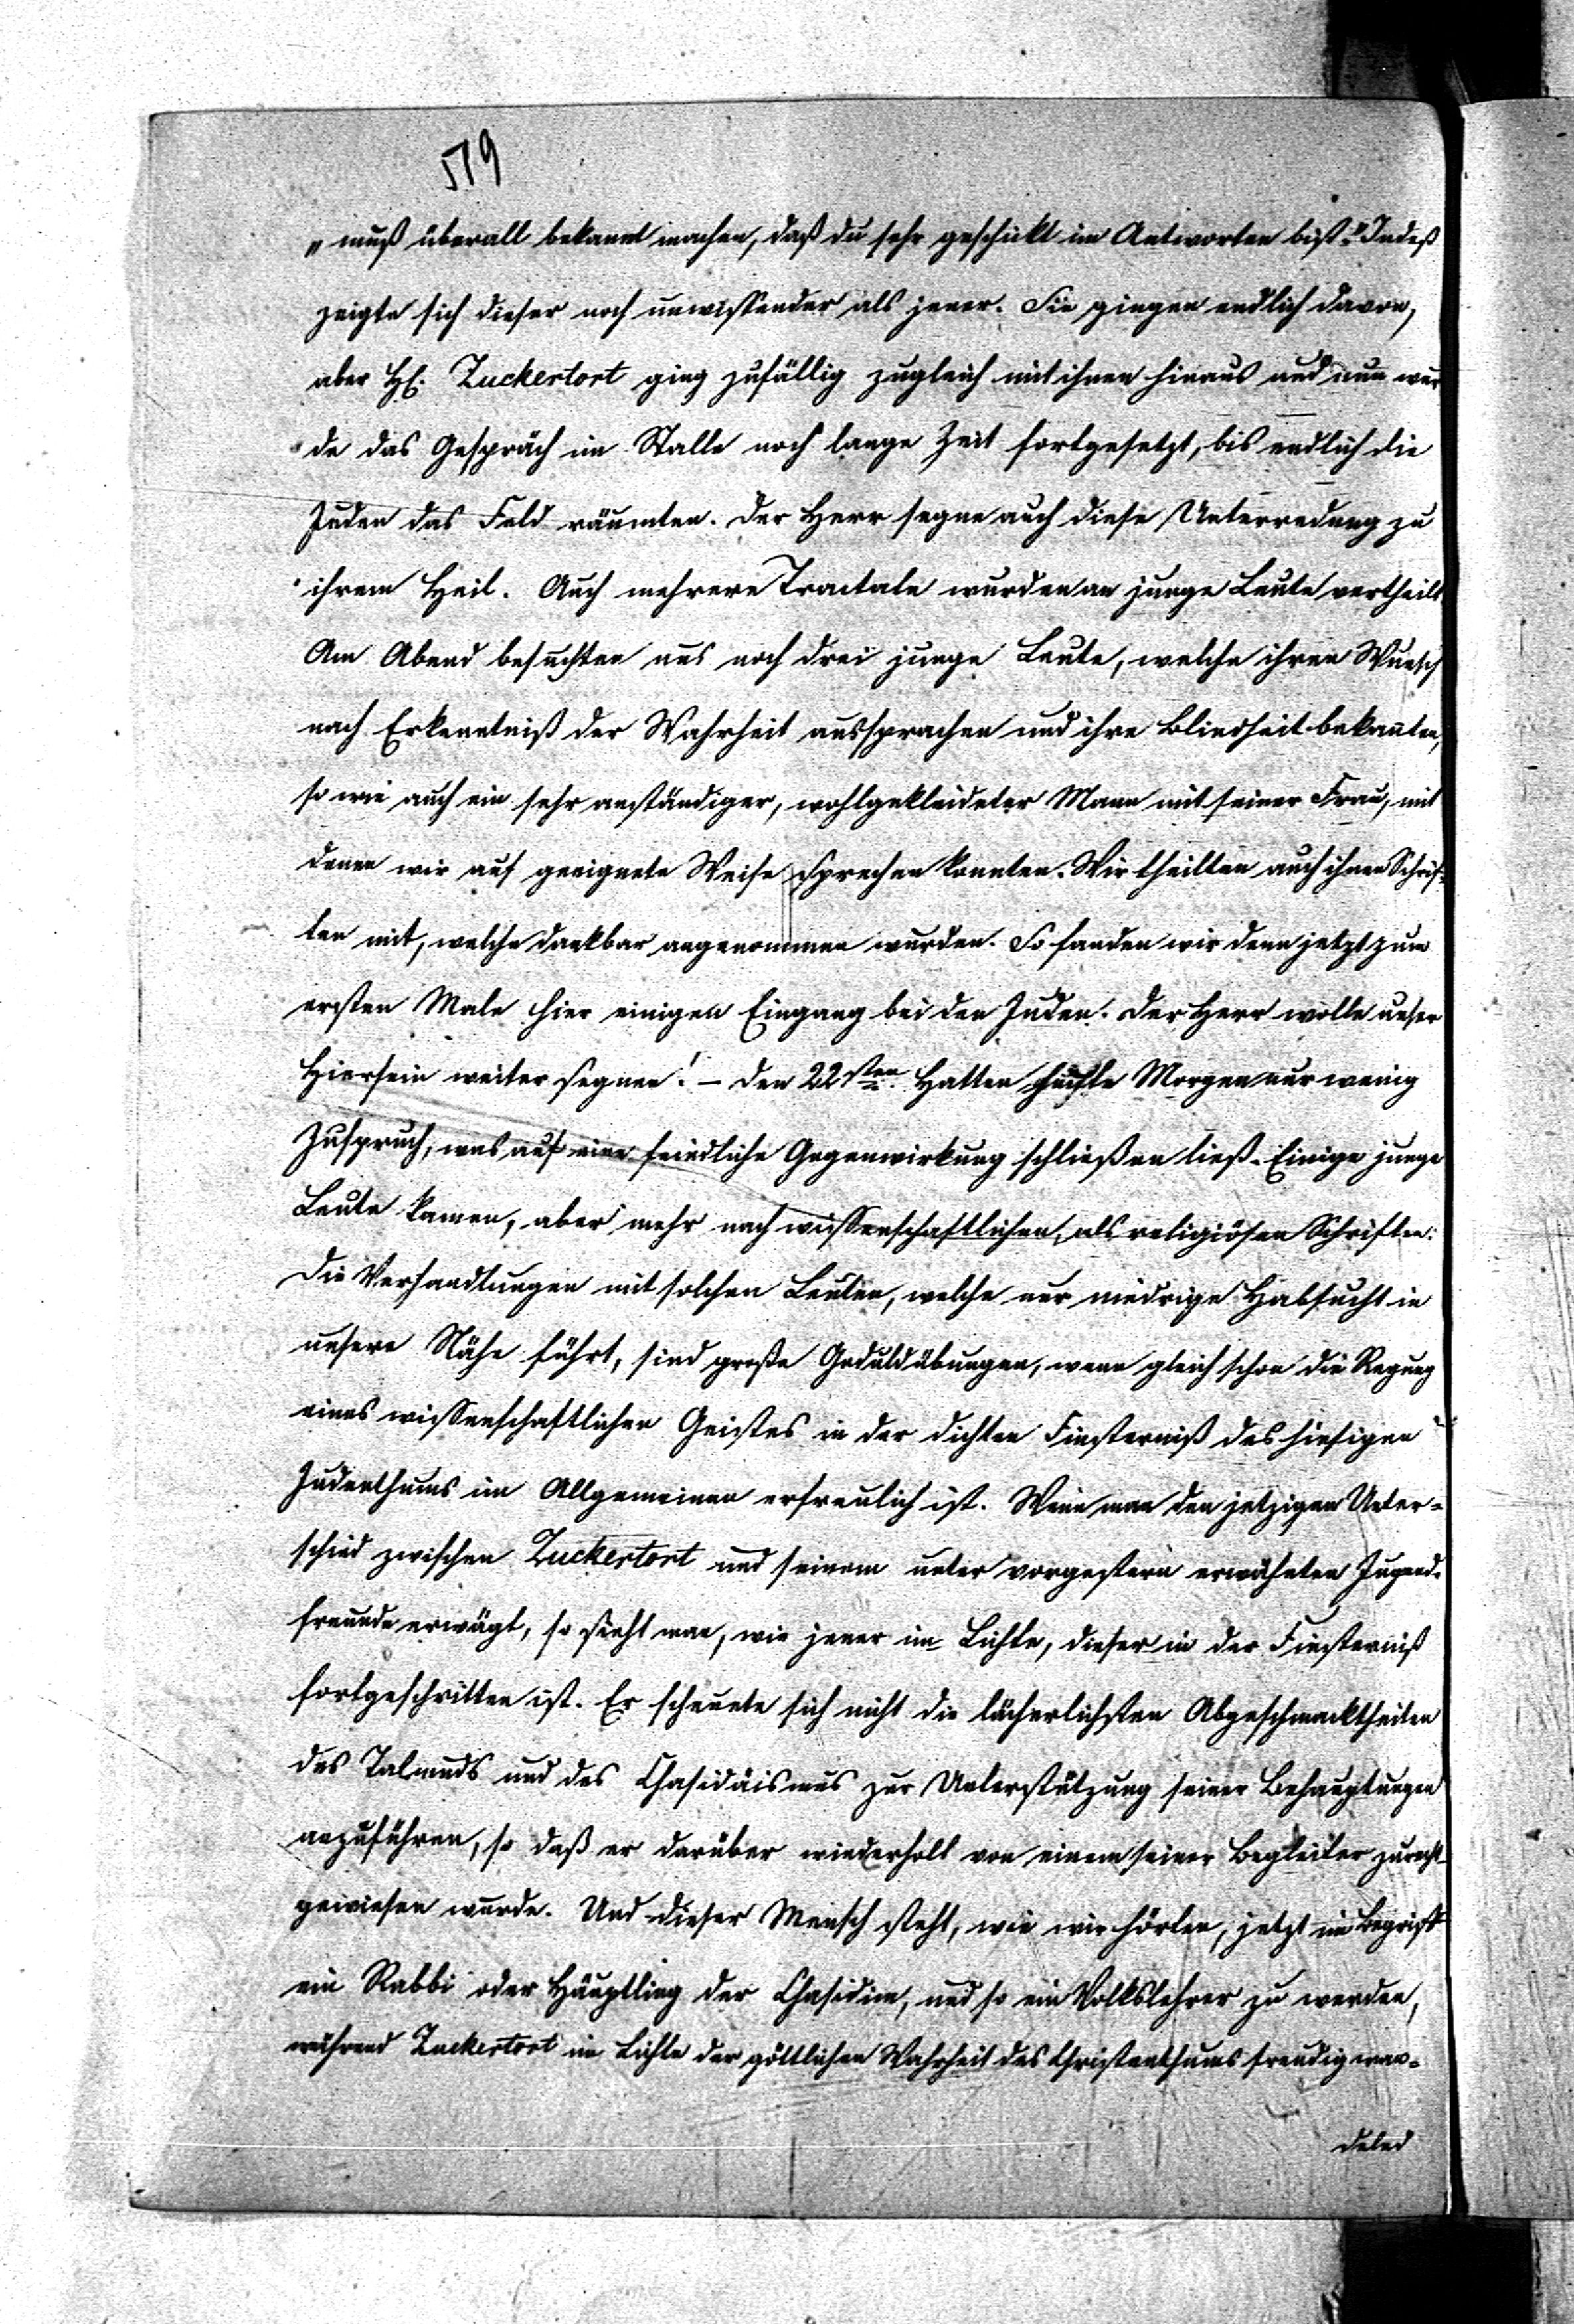 519
„muß überall bekannt machen, daß du sehr geschickt im Antworten bist.“ Indeß
zeigte sich dieser noch unwissender als jener. Sie gingen endlich davon,
aber H. Zuckertort ging zufällig zugleich mit ihnen hinaus und nun wur
de das Gespräch im Stalle noch lange Zeit fortgesetzt, bis endlich die
Juden das Feld räumten. Der Herr segne auch diese Unterredung zu
ihrem Heil. Auch mehrere Tractate wurden an junge Leute vertheilt
Am Abend besuchten uns noch drei junge Leute, welche ihren Wunsch
nach Erkenntniß der Wahrheit aussprachen und ihre Blindheit bekannten,
so wie auch ein sehr anständiger, wohlgekleideter Mann mit seiner Frau, mit
denen wir auf geeignete Weise sprechen konnten. Wir theilten auch ihnen Schrif-
ten mit, welche dankbar angenommen wurden. So fanden wir denn jetzt zum
ersten Male hier einigen Eingang bei den Juden. Der Herr wolle unser
Hiersein weiter segnen! – Den 22sten. Hatten heute Morgen nur wenig
Zuspruch, was auf eine feindliche Gegenwirkung schließen ließ. Einige junge
Leute kamen, aber mehr nach wissenschaftlichen, als religiösen Schriften.
Die Verhandlungen mit solchen Leuten, welche nur niedrige Habsucht in
unsere Nähe führt, sind große Geduldübungen, wenn gleich schon die Regung
eines wissenschaftlichen Geistes in der dichten Finsterniß des hiesigen
Judenthums im Allgemeinen erfreulich ist. Wenn man den jetzigen Unter-
schied zwischen Zuckertort und seinem unter vorgestern erwähnten Jugend-
freunde erwägt, so sieht man, wie jener im Lichte, dieser in der Finsterniß
fortgeschritten ist. Er scheuete sich nicht die lächerlichsten Abgeschmacktheiten
des Talmuds und des Chasidäismus zur Unterstützung seiner Behauptungen
anzuführen, so daß er darüber wiederholt von einem seiner Begleiter zurecht-
gewiesen wurde. Und dieser Mensch steht, wie wir hörten, jetzt im Begriff
ein Rabbi oder Häuptling der Chasidim, und so ein Volkslehrer zu werden,
während Zuckertort im Lichte der göttlichen Wahrheit des Christenthums freudig wan-
delnd